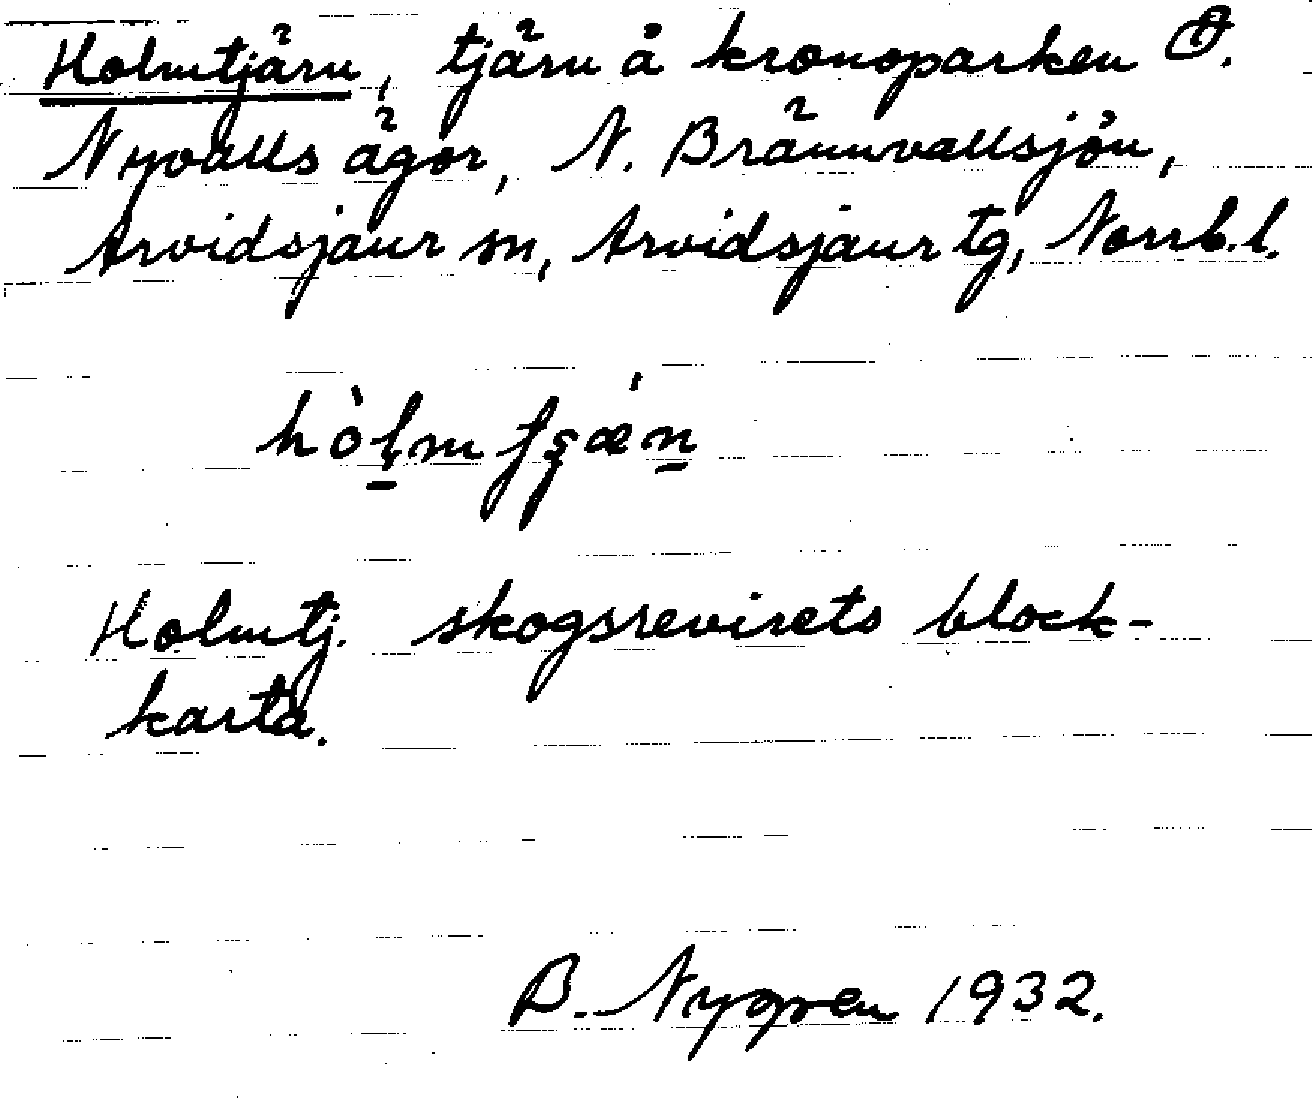 Holmtjärn, tjärn å kronoparken Ö.
Nyvalls ägor, N. Brännvallsjön,
Arvidsjaur sn, Arvidsjaur tg, Norrb.l.
Holmtj. skogsrevirets block-
karta.
B. Nygren 1932.